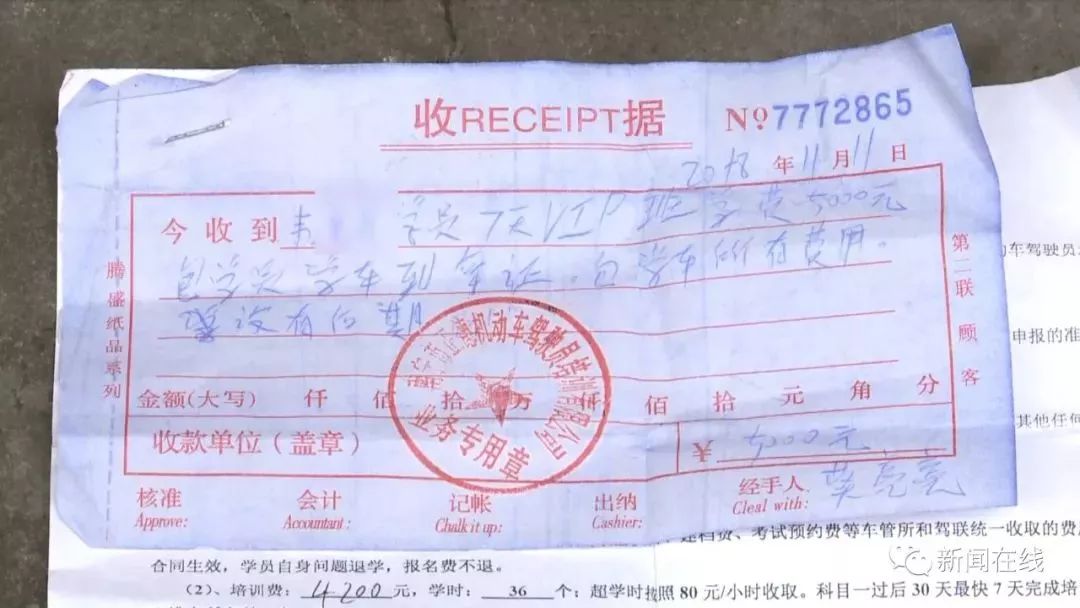 收RECEIPT据 №7772865
2018年11月11日
今收到 学员7天VIP班学费5000元
包学员学车到拿证。包学车所有费用。
没有
金额(大写) 仟 佰 拾 万 佰 拾 元 角 分
收款单位(盖章) ¥5000元
核准 会计 记帐 出纳 经手人
Approve: Accountant: Chalk it up: Cashier: Cleal with:
腾盛纸品系列
第二联 顾客
机动车驾驶员培训有限公司
业务专用章
车驾驶员
申报的准
其他任何
建档费、考试预约费等车管所和驾联统一收取的费
合同生效，学员自身问题退学，报名费不退。
(2)、培训费：4200元，学时：36个；超学时按照80元/小时收取。科目一过后30天最快7天完成培
新闻在线